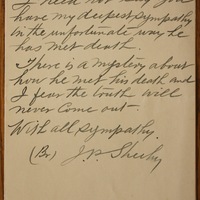 I need not say you
have my deepest sympathy
in the unfortunate way he
has met death.
There is a mystery about
how he met his death and
I fear the truth will
never come out.
With all sympathy.
(Bro) J.P. Sheehy